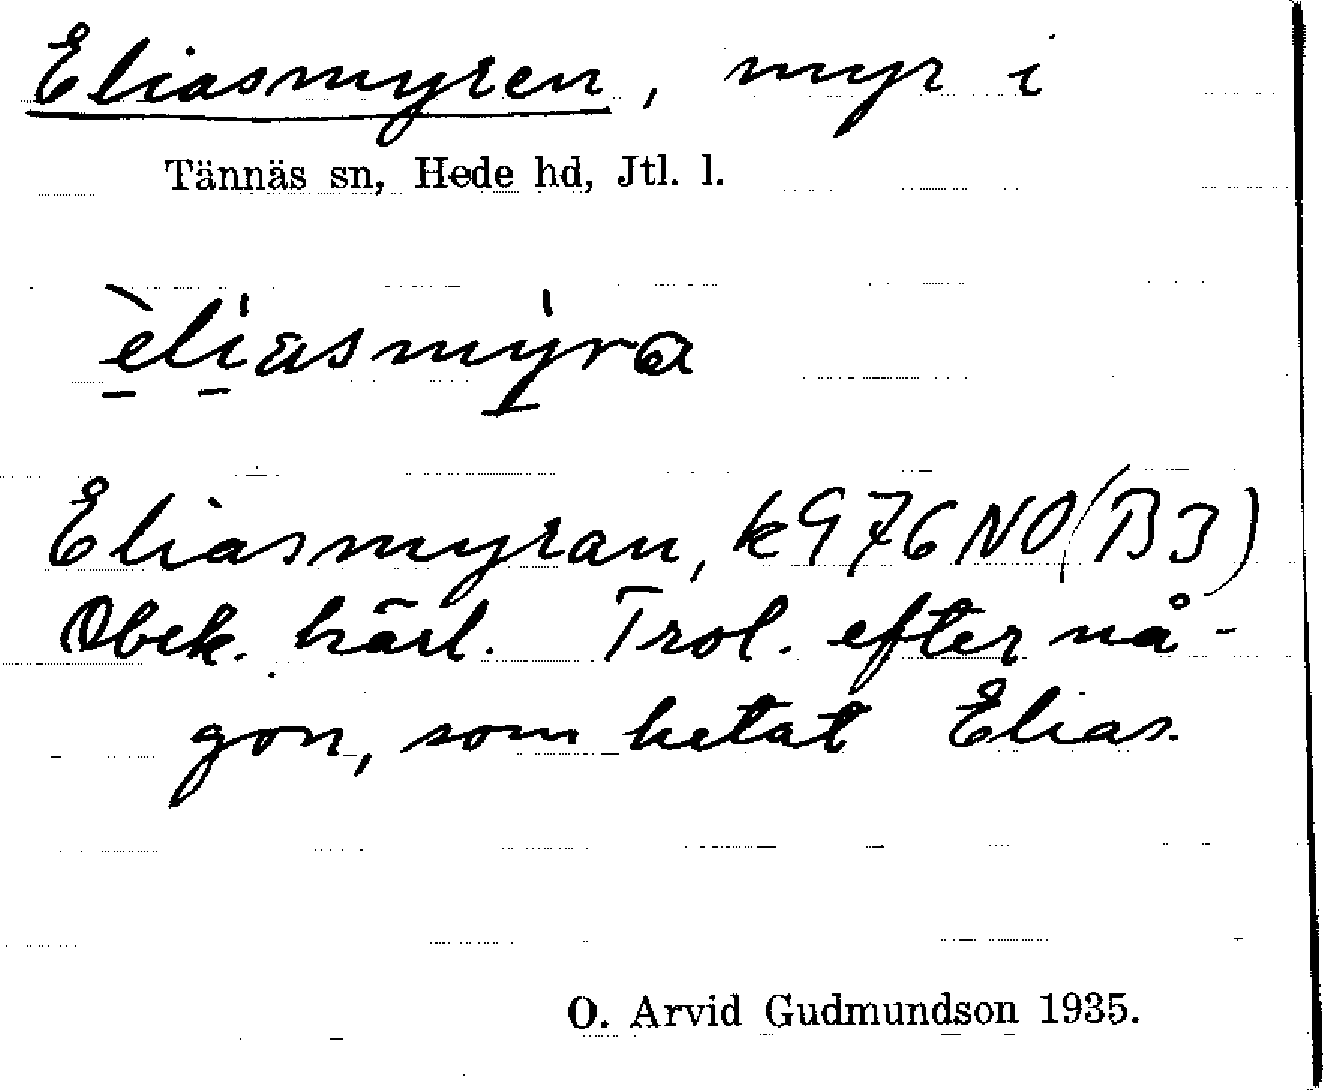 Eliasmyren, myr i
Tännäs sn, Hede hd, Jtl. l.
èliasmyra
Eliasmyran, k976NO(B3)
Obek. härl. Trol. efter nå-
gon, som hetat Elias.
O. Arvid Gudmundson 1935.